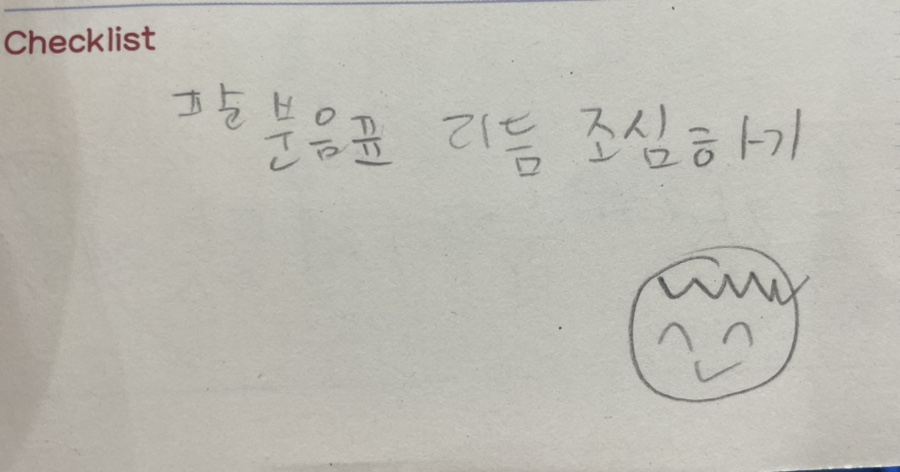 Checklist
팔분음표 리듬 조심하기